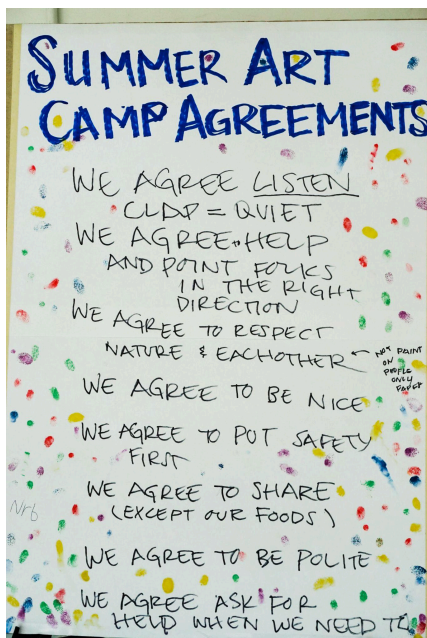 SUMMER ART
CAMP AGREEMENTS
WE AGREE LISTEN
CLAP = QUIET
WE AGREE HELP
AND POINT FOLKS
IN THE RIGHT
DIRECTION
WE AGREE TO RESPECT
NATURE & EACHOTHER
NOT PAINT
ON
PEOPLE
ONLY
PAPER
WE AGREE TO BE NICE
WE AGREE TO PUT SAFETY
FIRST
WE AGREE TO SHARE
(EXCEPT OUR FOODS)
WE AGREE TO BE POLITE
WE AGREE ASK FOR
HELP WHEN WE NEED IT